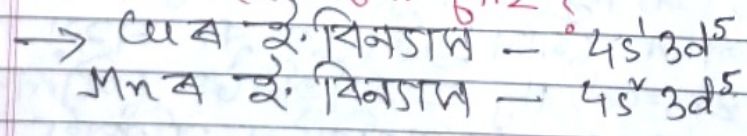 → Cu ব ই. বিনডাস – 4s¹ 3d⁵
Mn ব ই. বিনডাস – 4s² 3d⁵